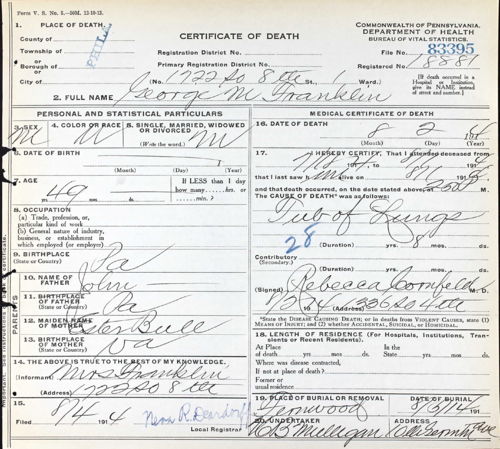 Form V. S. No. 5.—50M. 12-10-13.
1. PLACE OF DEATH
CERTIFICATE OF DEATH
COMMONWEALTH OF PENNSYLVANIA.
DEPARTMENT OF HEALTH
BUREAU OF VITAL STATISTICS.
County of
PHILA
Township of
or
Borough of
or
City of
Registration District No.
Primary Registration District No.
File No. 83395
Registered No. 18881
(No. 1722 So 8th St., 1 Ward.)
[If death occurred in a Hospital or Institution, give its NAME instead of street and number.]
2. FULL NAME George M Franklin
PERSONAL AND STATISTICAL PARTICULARS
3. SEX M
4. COLOR OR RACE W
5. SINGLE, MARRIED, WIDOWED OR DIVORCED M
6. DATE OF BIRTH
(Month) (Day) (Year)
7. AGE
49 yrs. mos. ds.
If LESS than 1 day how many hrs. or min.?
8. OCCUPATION
(a) Trade, profession, or particular kind of work
(b) General nature of industry, business, or establishment in which employed (or employer)
9. BIRTHPLACE (State or Country) Pa
PARENTS
10. NAME OF FATHER John
11. BIRTHPLACE OF FATHER (State or Country) Pa
12. MAIDEN NAME OF MOTHER Ester Bull
13. BIRTHPLACE OF MOTHER (State or Country) Va
14. THE ABOVE IS TRUE TO THE BEST OF MY KNOWLEDGE.
(Informant) Mrs Franklin
(Address) 1722 So 8th
15. Filed 8/4 1914
Local Registrar
MEDICAL CERTIFICATE OF DEATH
16. DATE OF DEATH
8 2 14
(Month) (Day) (Year)
17. I HEREBY CERTIFY, That I attended deceased from
that I last saw him alive on
and that death occurred, on the date stated above, at M.
The CAUSE OF DEATH* was as follows:
Tub of Lungs
28
(Duration) yrs. 8 mos. ds.
Contributory (Secondary.)
(Duration) yrs. mos. ds.
(Signed) Rebecca M. D.
(Address) 1336 So 4th
*State the DISEASE CAUSING DEATH; or in deaths from VIOLENT CAUSES, state (1) MEANS OF INJURY; and (2) whether ACCIDENTAL, SUICIDAL, or HOMICIDAL.
18. LENGTH OF RESIDENCE (For Hospitals, Institutions, Transients or Recent Residents).
At Place of death yrs. mos. ds. In the State yrs. mos. ds.
Where was disease contracted, if not at place of death?
Former or usual residence
19. PLACE OF BURIAL OR REMOVAL Fernwood
DATE OF BURIAL
20. UNDERTAKER Mulligan
ADDRESS